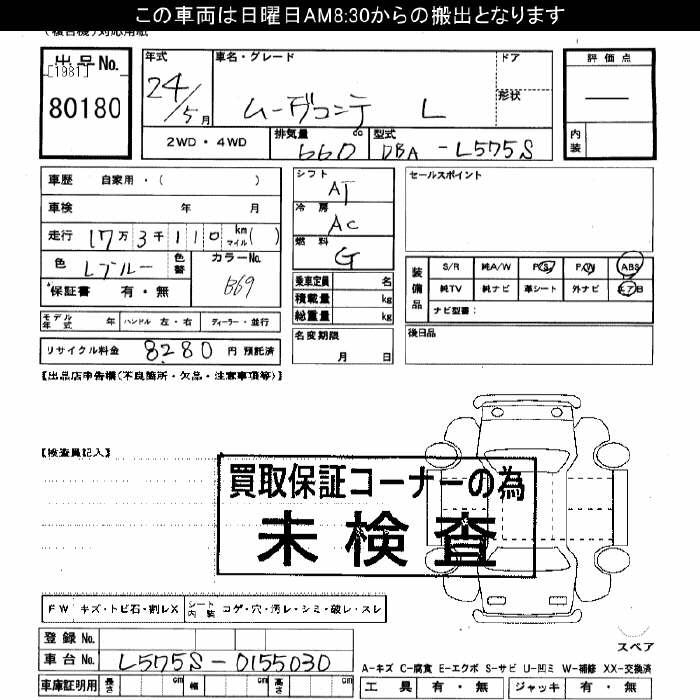 この車両は日曜日AM8:30からの搬出となります
(複合機)対応用紙
出品No.
[1981]
80180
年式 24/5月
車名・グレード ムーヴコンテ L
ドア
形状
2WD・4WD
排気量 660 cc
型式 DBA-L575S
評価点
—
内装
車歴 自家用・( )
車検 年 月
走行 17万3千110 km マイル( )
色 Lブルー
色替
カラーNo. B69
保証書 有・無
モデル年式 年 ハンドル 左・右 ディーラー・並行
リサイクル料金 8280 円 預託済
シフト AT
冷房 AC
燃料 G
乗車定員 名
積載量 kg
総重量 kg
名変期限
月 日
セールスポイント
装備品
S/R 純A/W P/S P/W ABS
純TV 純ナビ 革シート 外ナビ エアB
ナビ型番:
後日品
【出品店申告欄(不良箇所・欠品・注意事項等)】
【検査員記入】
買取保証コーナーの為
未検査
FW キズ・トビ石・割レX シート内装 コゲ・穴・汚レ・シミ・破レ・スレ
スペア
登録No.
車台No. L575S-0155030
車庫証明用 長さ cm 幅 cm 高さ cm
A-キズ C-腐食 E-エクボ S-サビ U-凹ミ W-補修 XX-交換済
工具 有・無 ジャッキ 有・無